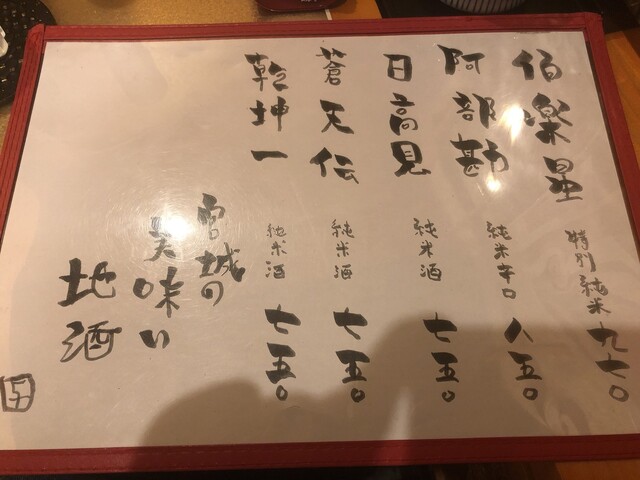 伯楽星 特別純米 九六〇
阿部勘 純米辛口 八五〇
日高見 純米酒 七五〇
蒼天伝 純米酒 七五〇
乾坤一 純米酒 七五〇
宮城の
美味い
地酒